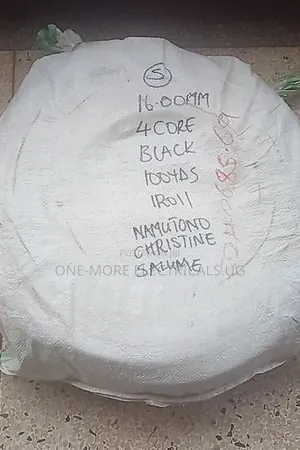 S
16.00MM
4CORE
BLACK
100YDS
1ROll
NAMUTONO
CHRISTINE
SALUME
ONE-MORE ELECTRICALS UG